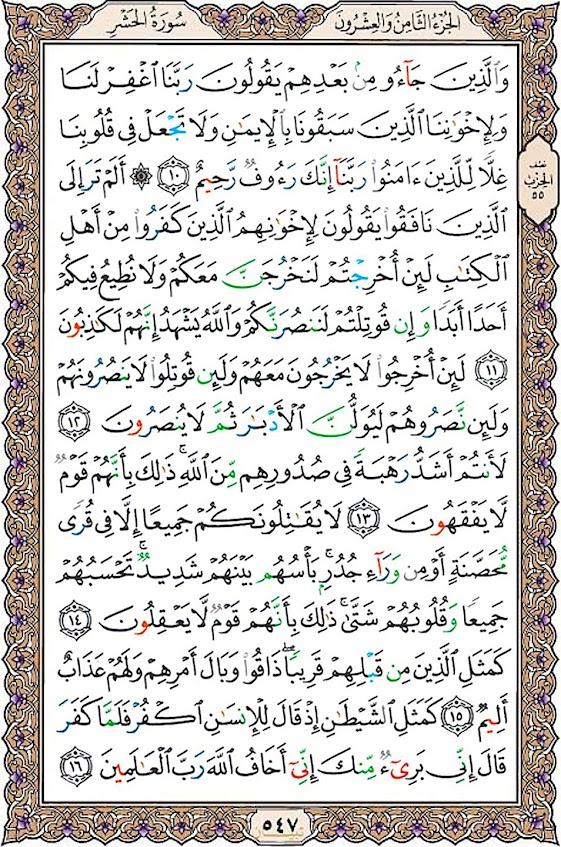 سُورَةُ الحَشْرِ
الجُزْءُ الثَّامِنُ وَالعِشْرُونَ
وَٱلَّذِينَ جَآءُو مِنۢ بَعْدِهِمْ يَقُولُونَ رَبَّنَا ٱغْفِرْ لَنَا
وَلِإِخْوَٰنِنَا ٱلَّذِينَ سَبَقُونَا بِٱلْإِيمَٰنِ وَلَا تَجْعَلْ فِى قُلُوبِنَا
غِلًّا لِّلَّذِينَ ءَامَنُوا۟ رَبَّنَآ إِنَّكَ رَءُوفٌ رَّحِيمٌ ١٠ ۞ أَلَمْ تَرَ إِلَى
نصف
الحزب
٥٥
ٱلَّذِينَ نَافَقُوا۟ يَقُولُونَ لِإِخْوَٰنِهِمُ ٱلَّذِينَ كَفَرُوا۟ مِنْ أَهْلِ
ٱلْكِتَٰبِ لَئِنْ أُخْرِجْتُمْ لَنَخْرُجَنَّ مَعَكُمْ وَلَا نُطِيعُ فِيكُمْ
أَحَدًا أَبَدًا وَإِن قُوتِلْتُمْ لَنَنصُرَنَّكُمْ وَٱللَّهُ يَشْهَدُ إِنَّهُمْ لَكَٰذِبُونَ
١١ لَئِنْ أُخْرِجُوا۟ لَا يَخْرُجُونَ مَعَهُمْ وَلَئِن قُوتِلُوا۟ لَا يَنصُرُونَهُمْ
وَلَئِن نَّصَرُوهُمْ لَيُوَلُّنَّ ٱلْأَدْبَٰرَ ثُمَّ لَا يُنصَرُونَ ١٢
لَأَنتُمْ أَشَدُّ رَهْبَةً فِى صُدُورِهِم مِّنَ ٱللَّهِ ۚ ذَٰلِكَ بِأَنَّهُمْ قَوْمٌ
لَّا يَفْقَهُونَ ١٣ لَا يُقَٰتِلُونَكُمْ جَمِيعًا إِلَّا فِى قُرًى
مُّحَصَّنَةٍ أَوْ مِن وَرَآءِ جُدُرٍۭ ۚ بَأْسُهُم بَيْنَهُمْ شَدِيدٌ ۚ تَحْسَبُهُمْ
جَمِيعًا وَقُلُوبُهُمْ شَتَّىٰ ۚ ذَٰلِكَ بِأَنَّهُمْ قَوْمٌ لَّا يَعْقِلُونَ ١٤
كَمَثَلِ ٱلَّذِينَ مِن قَبْلِهِمْ قَرِيبًا ۖ ذَاقُوا۟ وَبَالَ أَمْرِهِمْ وَلَهُمْ عَذَابٌ
أَلِيمٌ ١٥ كَمَثَلِ ٱلشَّيْطَٰنِ إِذْ قَالَ لِلْإِنسَٰنِ ٱكْفُرْ فَلَمَّا كَفَرَ
قَالَ إِنِّى بَرِىٓءٌ مِّنكَ إِنِّىٓ أَخَافُ ٱللَّهَ رَبَّ ٱلْعَٰلَمِينَ ١٦
٥٤٧